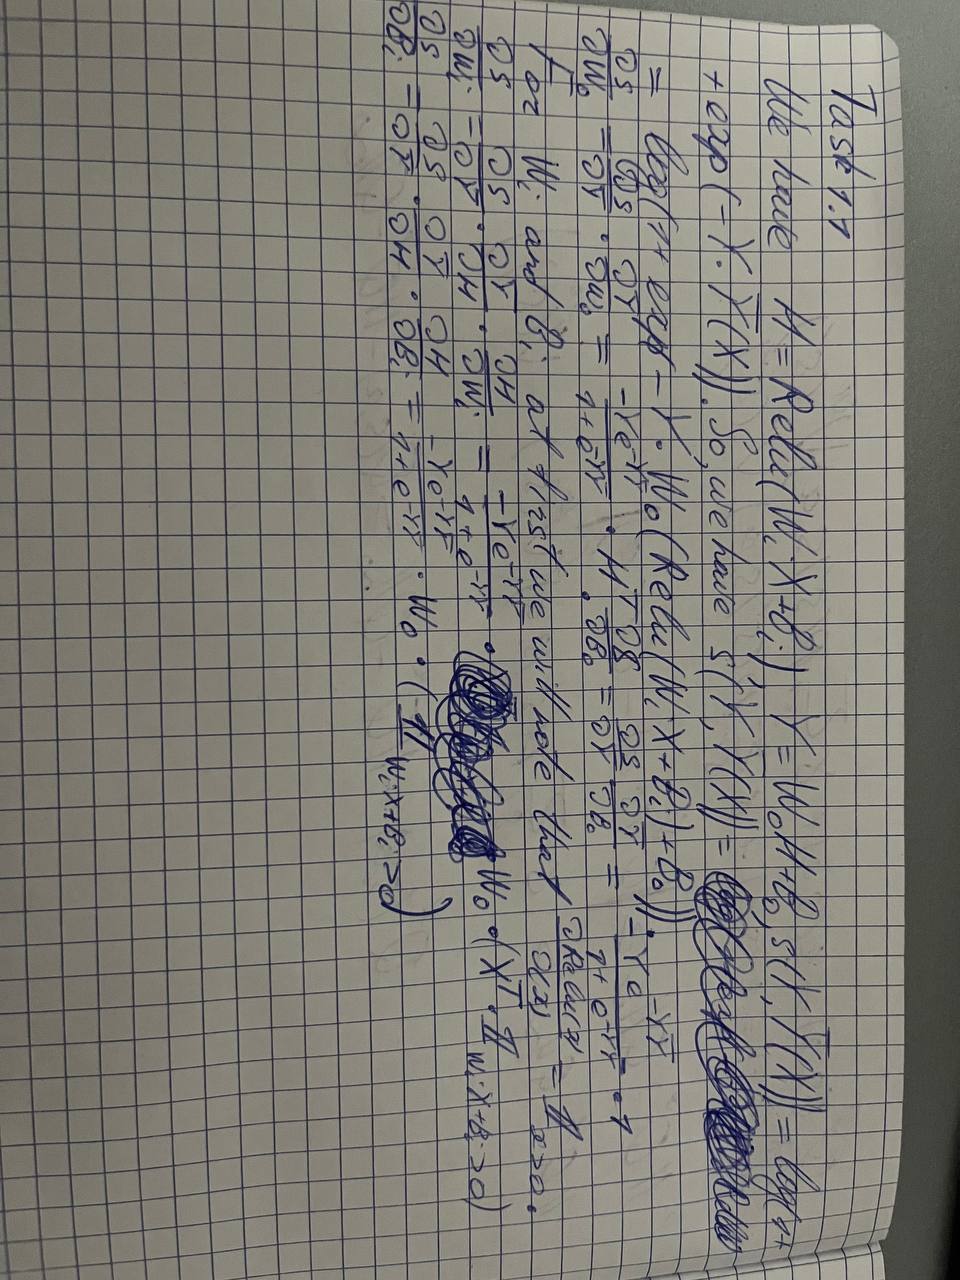 Task 1.1
We have H = Relu(WᵢX+Bᵢ), Y = W₀H+B₀, s(Y, Ȳ(X)) = log(1+
+exp(-Y·Ȳ(X)). So, we have s(Y, Ȳ(X)) =
= log(1+ exp(-Y·W₀(Relu(WᵢX+Bᵢ)+B₀)).
∂s/∂W₀ = ∂s/∂Ȳ · ∂Ȳ/∂W₀ = -Ye^(-YȲ)/(1+e^(-YȲ)) · Hᵀ. ∂s/∂B₀ = ∂s/∂Ȳ · ∂Ȳ/∂B₀ = -Ye^(-YȲ)/(1+e^(-YȲ)) · 1
For Wᵢ and Bᵢ at first we will note that ∂Relu(x)/∂(x) = 𝟙 x>0.
∂s/∂Wᵢ = ∂s/∂Ȳ · ∂Ȳ/∂H · ∂H/∂Wᵢ = -Ye^(-YȲ)/(1+e^(-YȲ)) · W₀ · (Xᵀ · 𝟙 WᵢX+Bᵢ>0)
∂s/∂Bᵢ = ∂s/∂Ȳ · ∂Ȳ/∂H · ∂H/∂Bᵢ = -Ye^(-YȲ)/(1+e^(-YȲ)) · W₀ · (𝟙 WᵢX+Bᵢ>0)